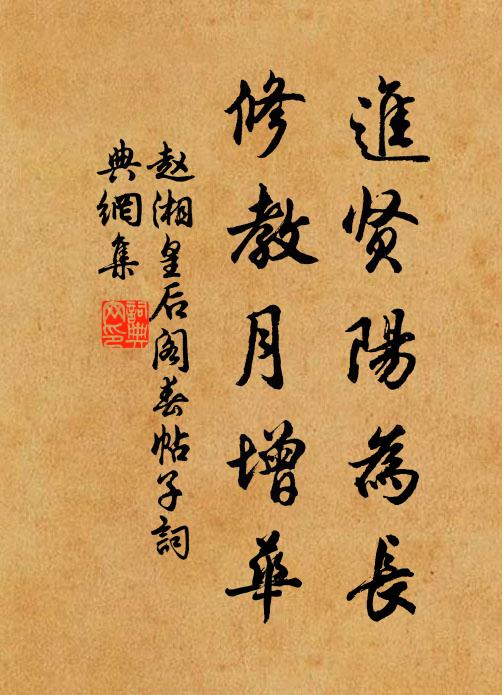 進贤陽為長
修教月增華
赵湘皇后阁春帖子詞
典網集
詞典网印